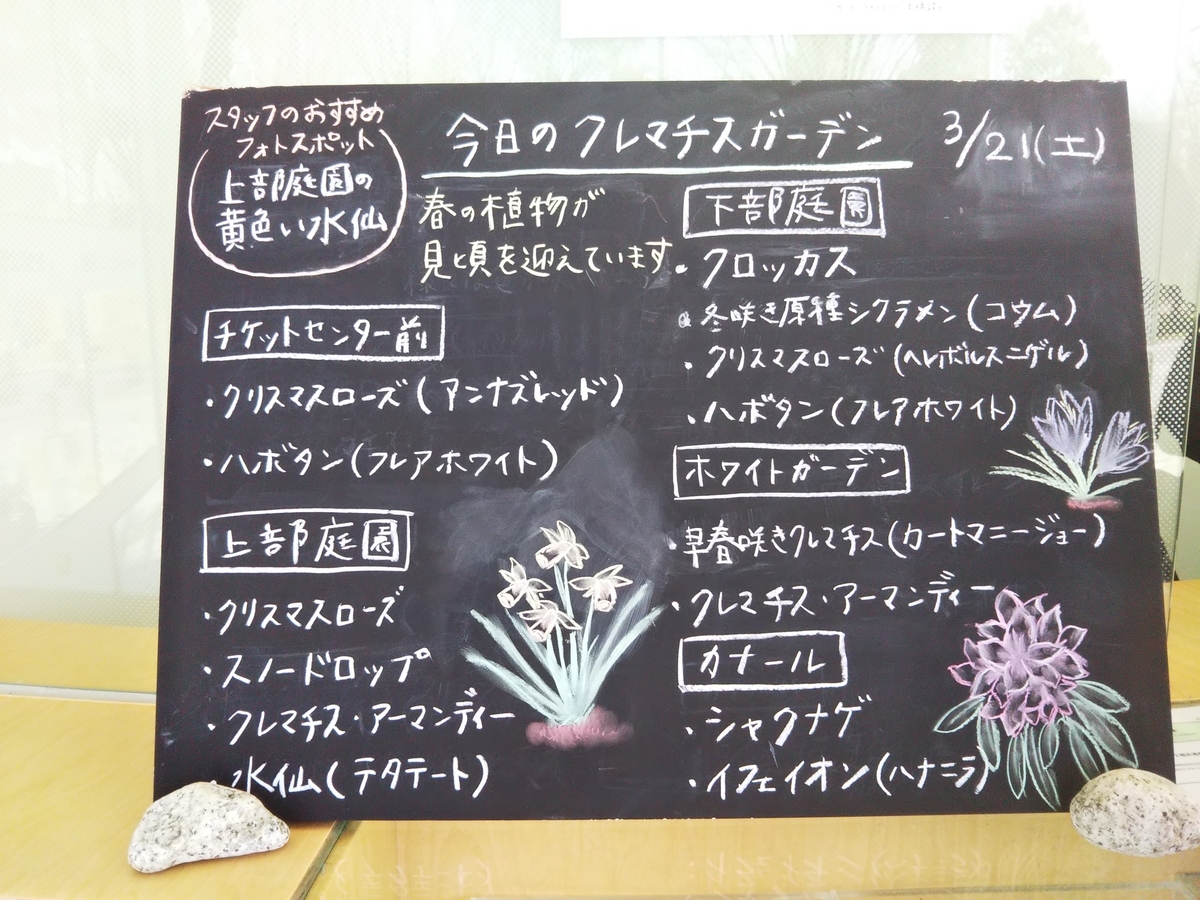 スタッフのおすすめ
フォトスポット
上部庭園の
黄色い水仙
今日のクレマチスガーデン 3/21(土)
春の植物が
見ど頃を迎えています
チケットセンター前
・クリスマスローズ(アンナズレッド)
・ハボタン(フレアホワイト)
上部庭園
・クリスマスローズ
・スノードロップ
・クレマチス・アーマンディー
水仙(テタテート)
下部庭園
・クロッカス
・冬咲き原種シクラメン(コウム)
・クリスマスローズ(ヘレボルスニゲル)
・ハボタン(フレアホワイト)
ホワイトガーデン
・早春咲きクレマチス(カートマニージョー)
・クレマチス・アーマンディー
カナール
・シャクナゲ
・イフェイオン(ハナニラ)